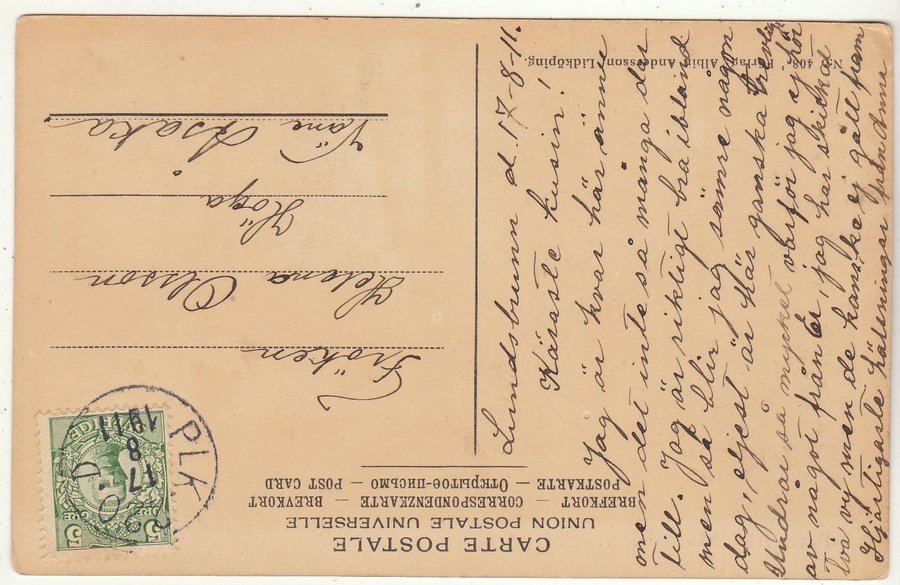 CARTE POSTALE
UNION POSTALE UNIVERSELLE
BREFKORT — CORRESPONDENZKARTE — BREVKORT
POSTKARTE — Открытое-письмо — POST CARD
5 ÖRE 5
PLK
17
8
1911
Fröken
Helena Olsson
Höga
Väne Åsaka
No 403. Förlag, Albin Andersson, Lidköping.
Lundsbrunn d. 17-8-11.
Käraste kusin!
Jag är kvar här ännu
men det inte så många dar
till. Jag är riktigt bra ibland
men så blir jag sämre någon
dag, eljest är här ganska trevligt
Undrar så mycket varför jag ej hör
av något från Er, jag har skickat
två vy men de kanske ej gått fram
Hjärtligaste hälsningar från Anna